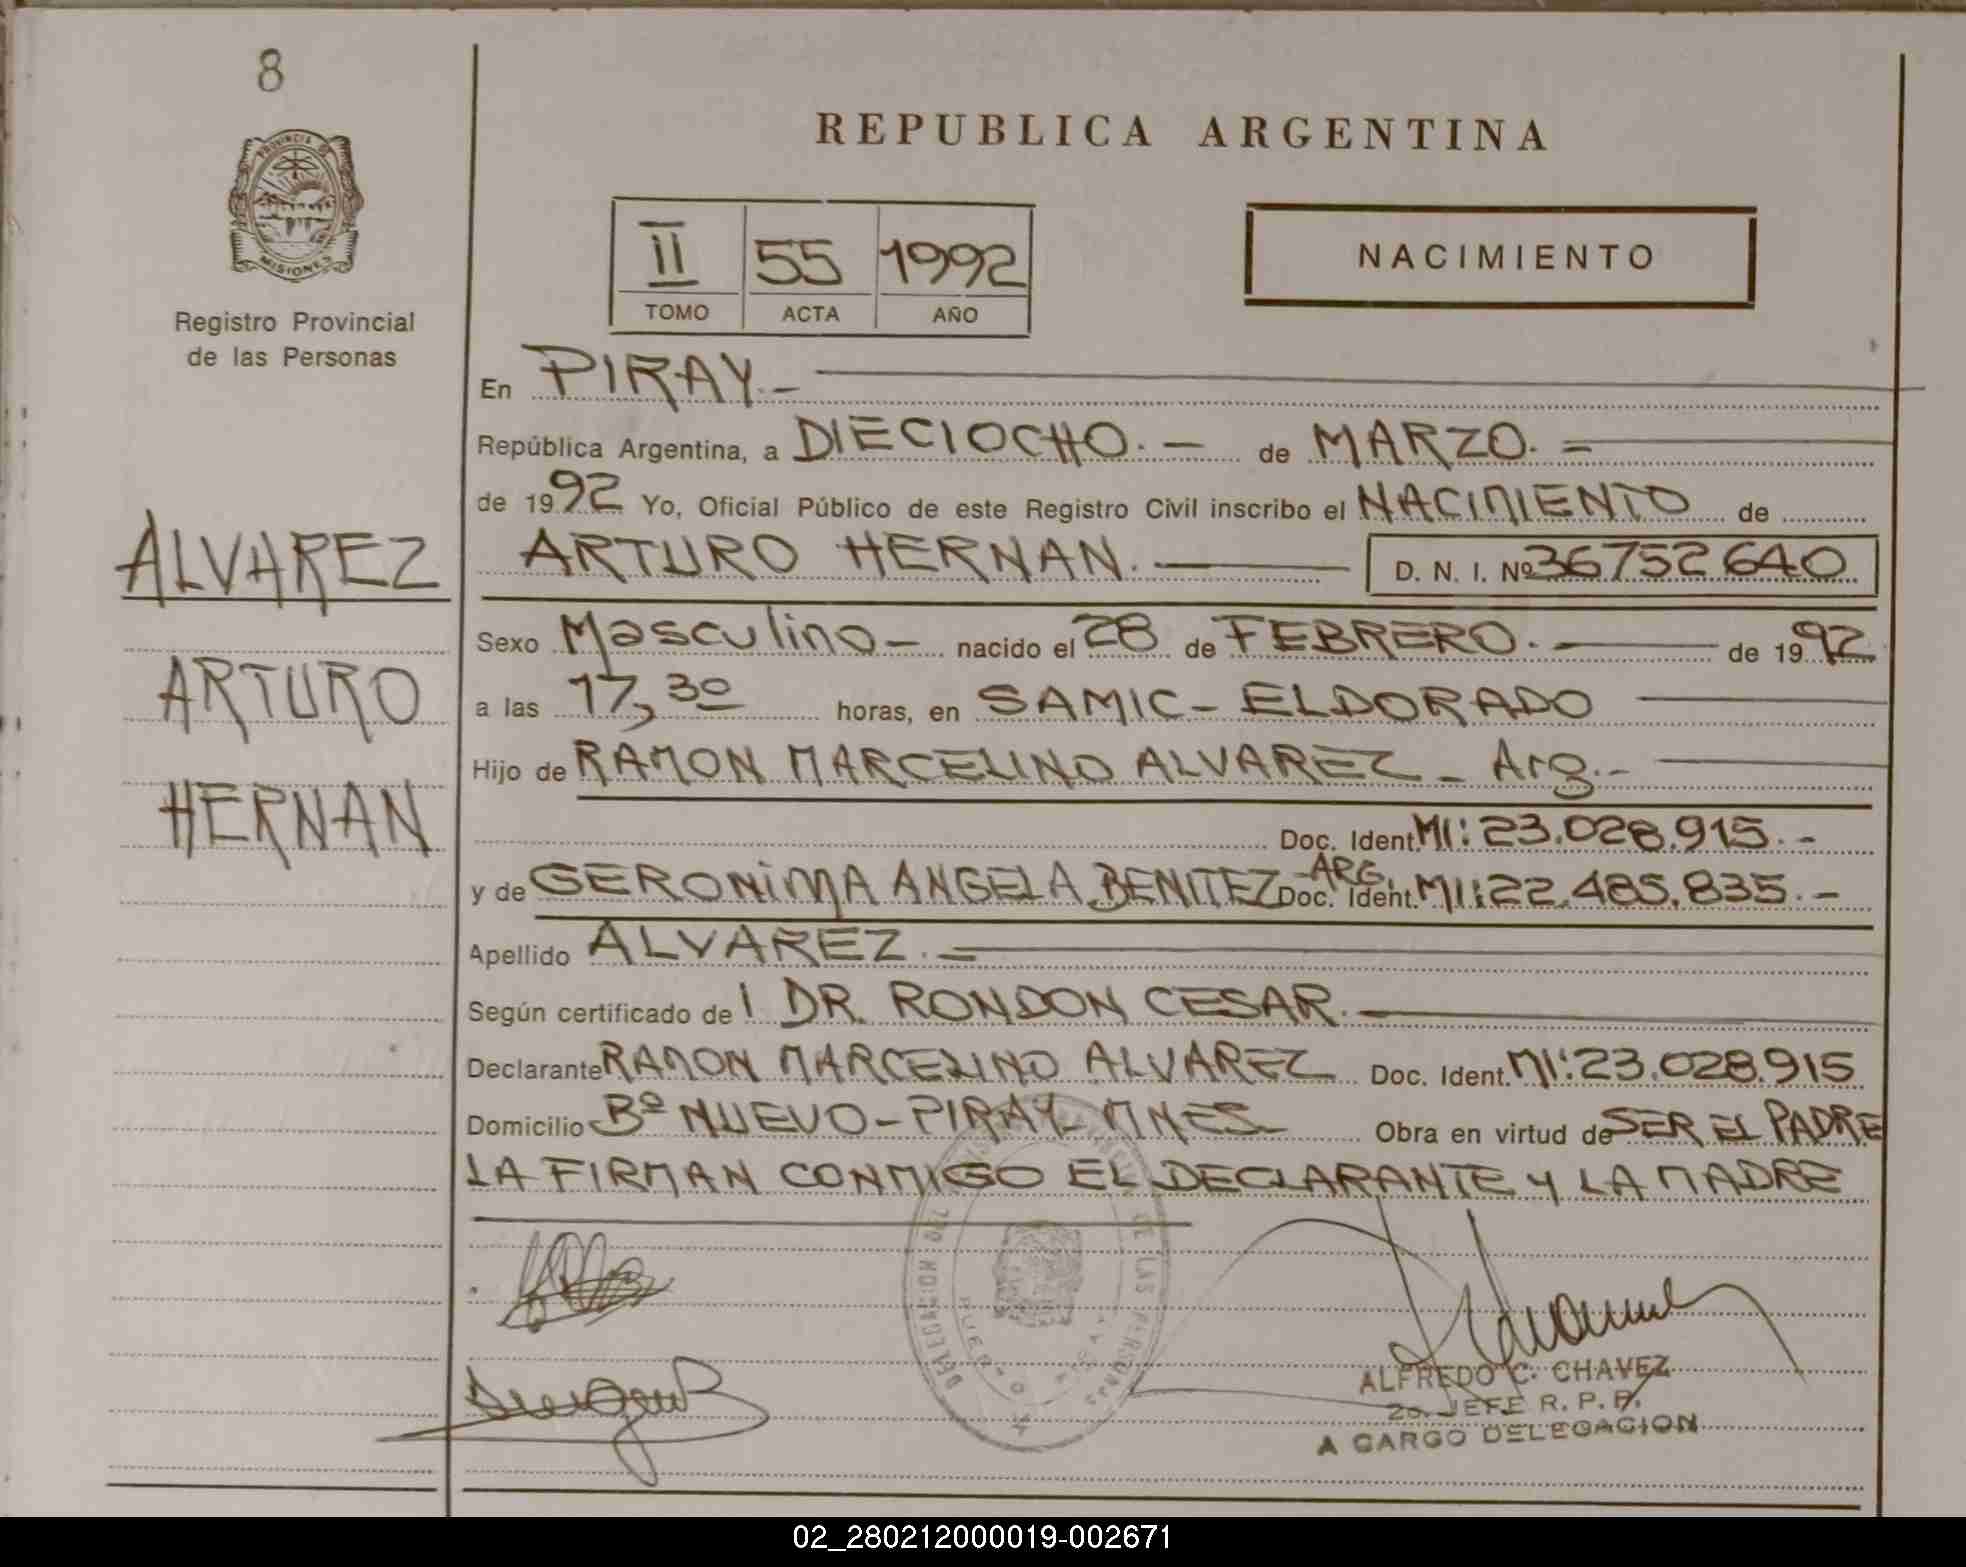 8
PROVINCIA DE
MISIONES
Registro Provincial
de las Personas
ALVAREZ
ARTURO
HERNAN
REPUBLICA ARGENTINA
II 55 1992
TOMO ACTA AÑO
NACIMIENTO
En PIRAY.-
República Argentina, a DIECIOCHO.- de MARZO.=
de 1992 Yo, Oficial Público de este Registro Civil inscribo el NACIMIENTO de
ARTURO HERNAN.— D. N. I. Nº 36752640
Sexo Masculino- nacido el 28 de FEBRERO.— de 1992
a las 17,30 horas, en SAMIC- ELDORADO
Hijo de RAMON MARCELINO ALVAREZ - Arg.-
Doc. Ident. MI: 23.028.915.-
y de GERONIMA ANGELA BENITEZ -ARG. Doc. Ident. MI: 22.485.835.-
Apellido ALVAREZ.=
Según certificado de l DR. RONDON CESAR.—
Declarante RAMON MARCELINO ALVAREZ Doc. Ident. MI: 23.028.915
Domicilio Bº NUEVO-PIRAY- MNES- Obra en virtud de SER EL PADRE
LA FIRMAN CONMIGO EL DECLARANTE Y LA MADRE
DELEGACION DEL DE LAS PERSONAS
ALFREDO C. CHAVEZ
2o. JEFE R. P. P.
A CARGO DELEGACION
02_280212000019-002671